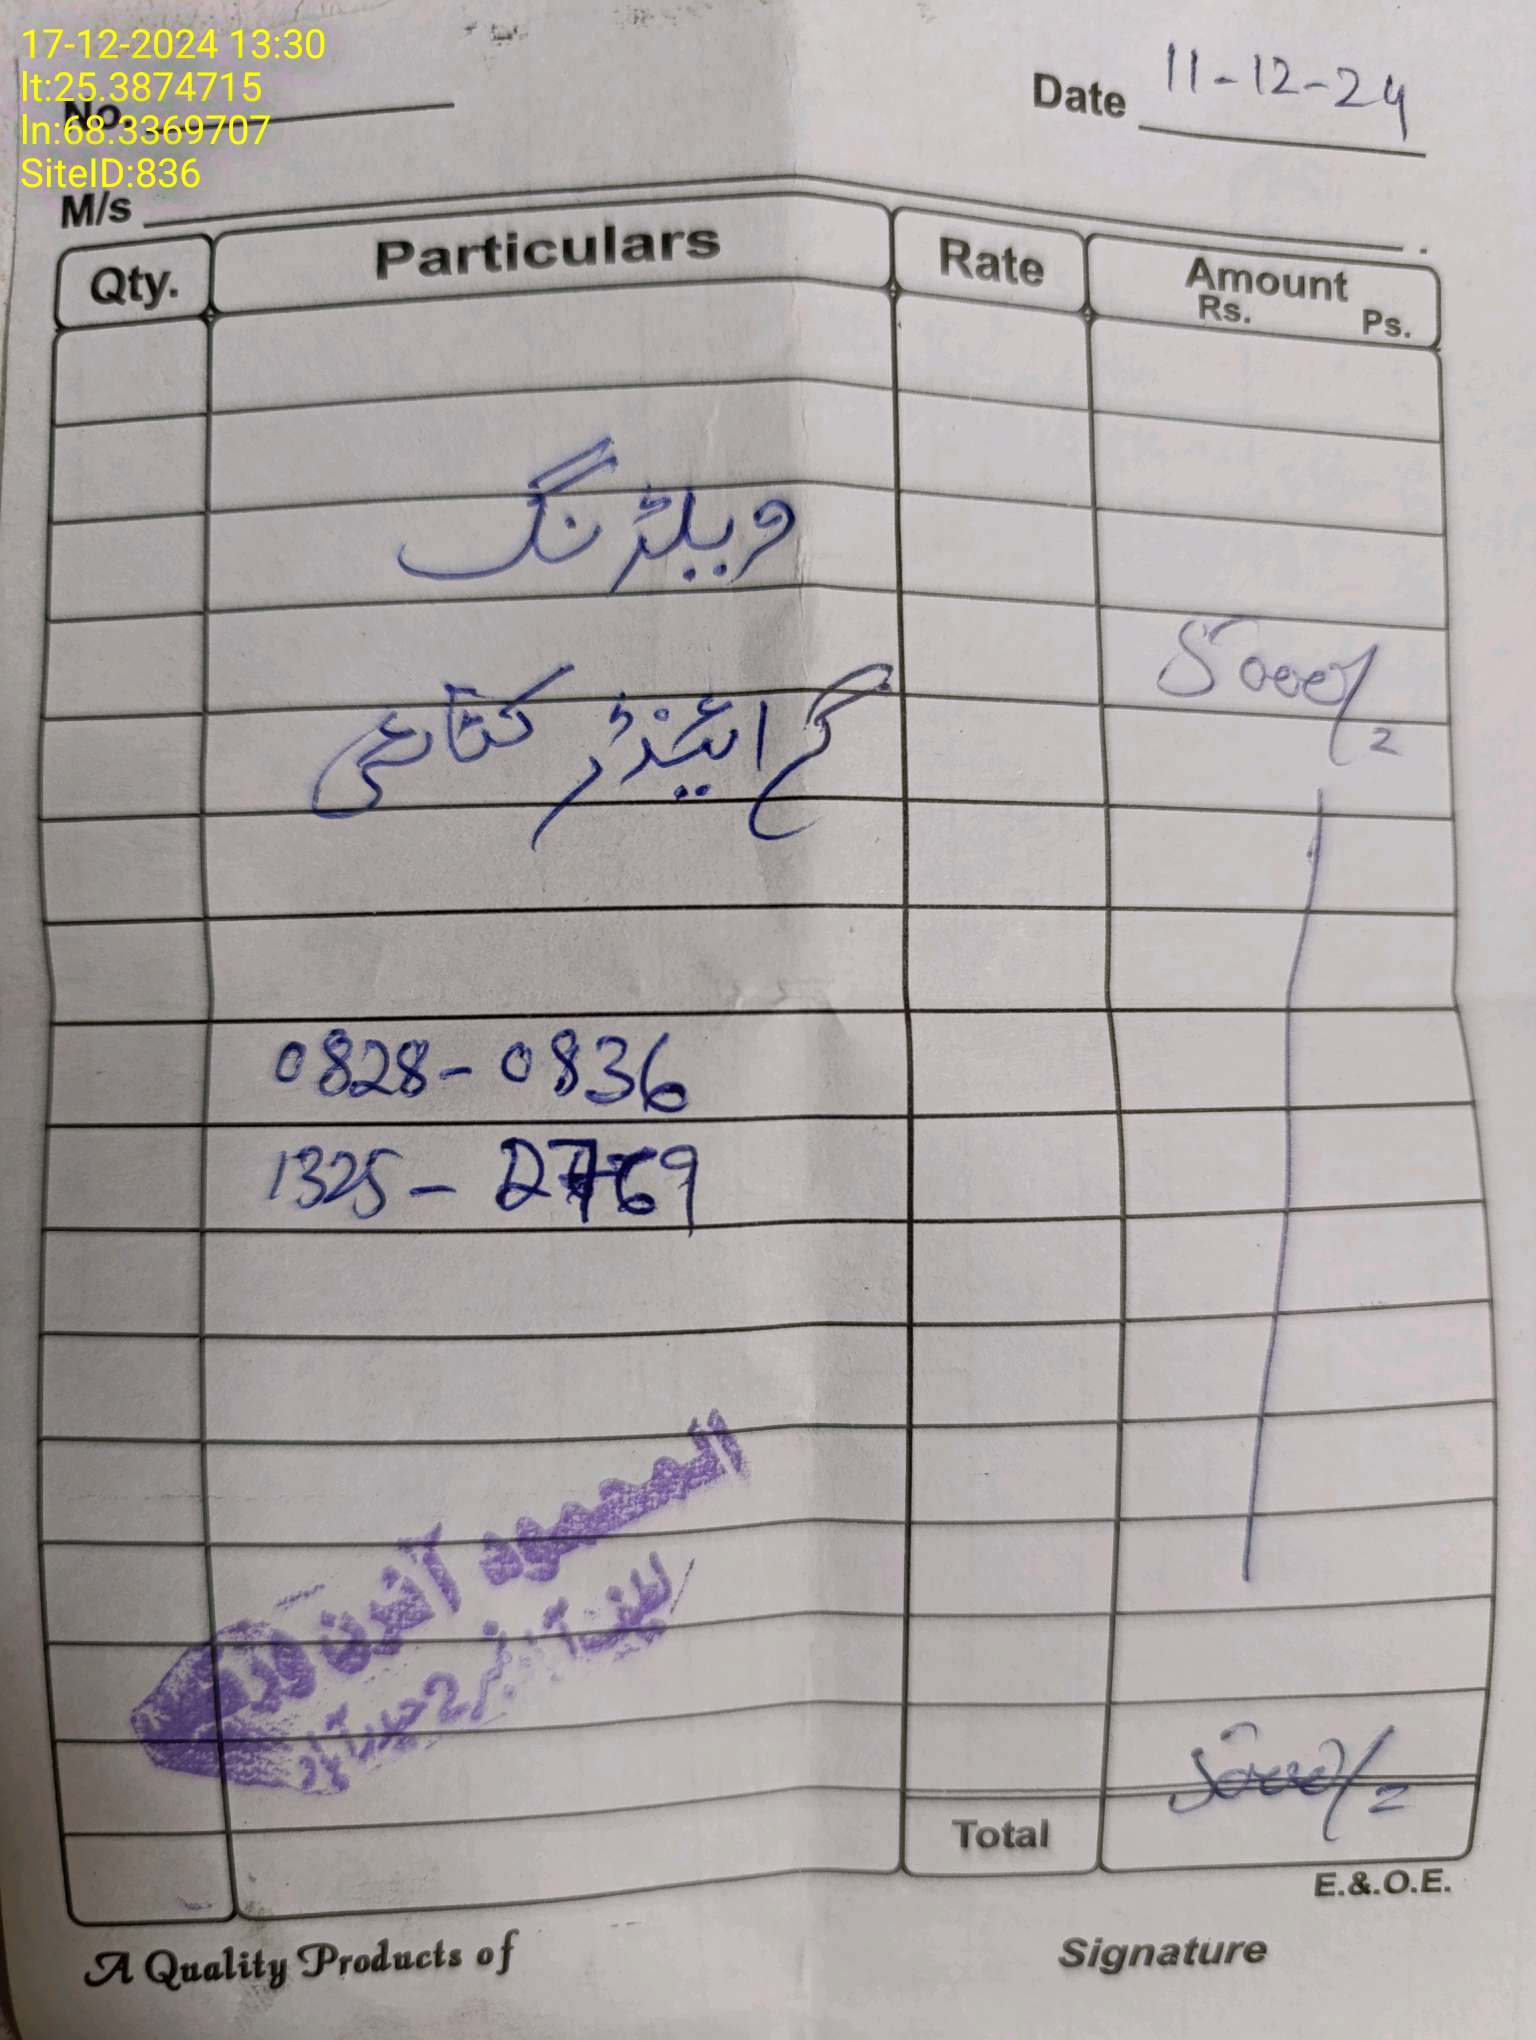 17-12-2024 13:30
lt:25.3874715
ln:68.3369707
SiteID:836
No.
Date 11-12-24
M/s
Qty. Particulars Rate Amount
Rs. Ps.
ویلڈنگ
5000/=
گرائینڈر کٹائی
0828 - 0836
1325 -
المحمود آئرن ورکس
لطیف آباد نمبر 2 حیدرآباد
5000/=
Total
E.&.O.E.
A Quality Products of
Signature